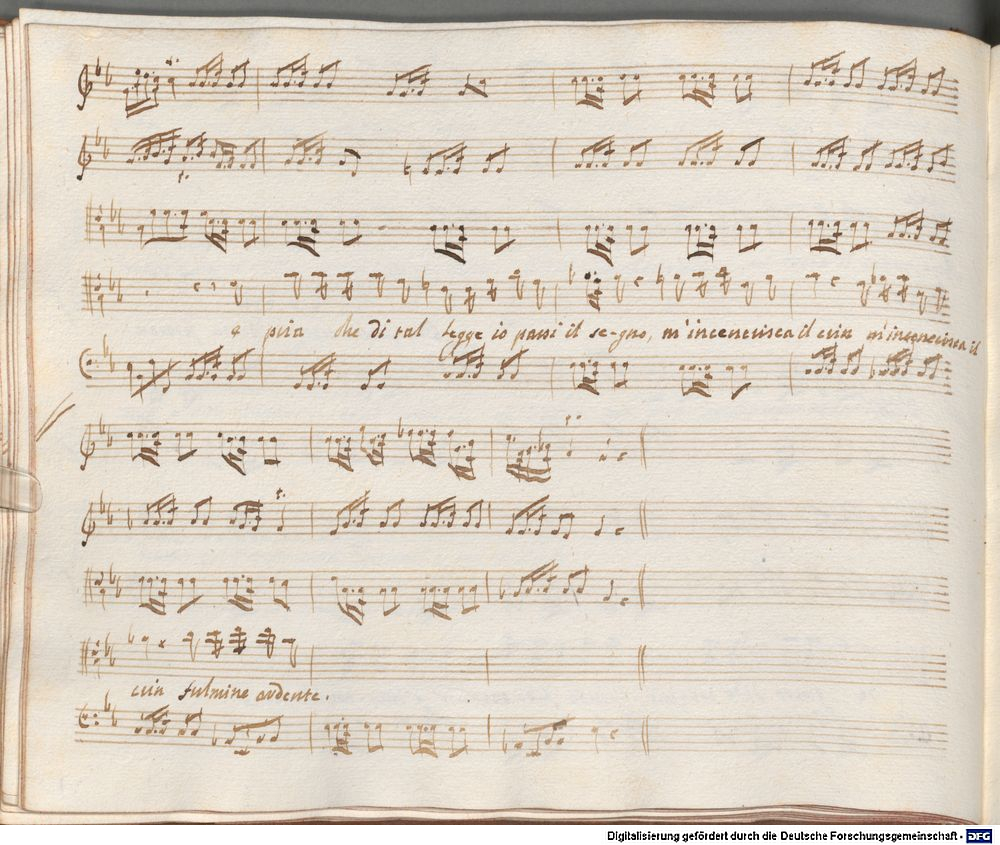 e pria che di tal legge io passi il se-gno, m'incenerisca il crin m'incenerisca il
crin fulmine ardente.
Digitalisierung gefördert durch die Deutsche Forschungsgemeinschaft - DFG